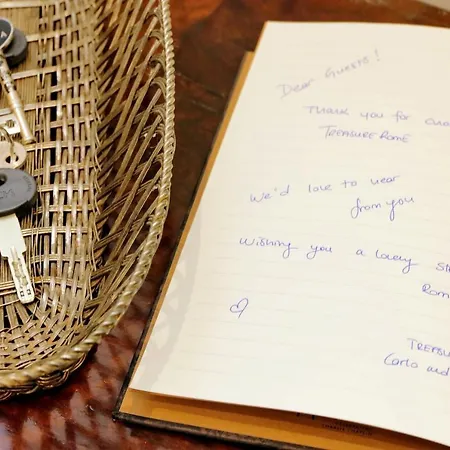 Dear Guests!
Thank you for
TREASURE ROME
We'd love to hear
from you
Wishing you a lovely
Rom
TREASU
Carlo and